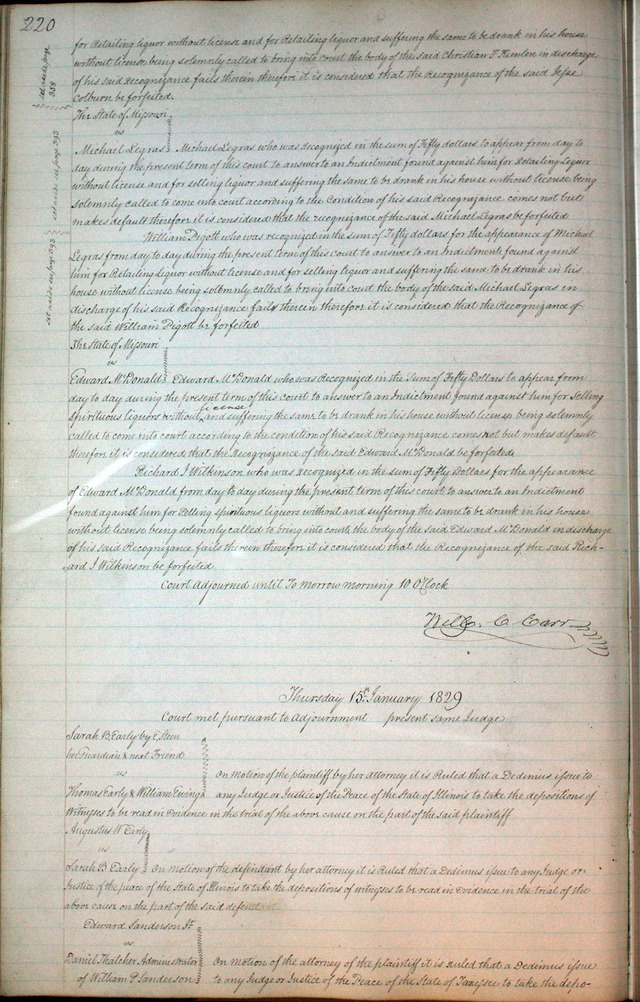 220
for Retailing liquor without license and for Retailing liquor and suffering the same to be drank in his house
without license being solemnly called to bring into Court the body of the said Christian F. Hemlen in discharge
of his said Recognizance fails therein therefore it is considered that the Recognizance of the said Jesse
Colburn be forfeited.
The State of Missouri
vs
Michael Legras Michael Legras who was recognized in the sum of Fifty dollars to appear from day to
day during the present term of this court to answer to an Indictment found against him for Retailing liquor
without license and for selling liquor and suffering the same to be drank in his house without license being
solemnly called to come into court according to the Condition of his said Recognizance comes not but
makes default therefore it is considered that the recognizance of the said Michael Legras be forfeited
William Pigott who was recognized in the sum of Fifty dollars for the appearance of Michael
Legras from day to day during the present term of this court to answer to an Indictment found against
him for Retailing liquor without license and for selling liquor and suffering the same to be drank in his
house without license being solemnly called to bring into court the body of the said Michael Legras in
discharge of his said Recognizance fails therein therefore it is considered that the Recognizance of
the said William Pigott be forfeited
The State of Missouri
vs
Edward McDonald Edward McDonald who was Recognized in the Sum of Fifty Dollars to appear from
day to day during the present term of this court to answer to an Indictment found against him for Selling
Spirituous liquors without license and suffering the same to be drank in his house without license being solemnly
called to come into court according to the condition of his said Recognizance comes not but makes default
therefore it is considered that the Recognizance of the said Edward McDonald be forfeited
Richard J Wilkinson who was recognized in the sum of Fifty Dollars for the appearance
of Edward McDonald from day to day during the present term of this court to answer to an Indictment
found against him for Selling Spirituous liquors without and suffering the same to be drank in his house
without license being solemnly called to bring into court the body of the said Edward McDonald in discharge
of his said Recognizance fails therein therefore it is considered that the Recognizance of the said Rich-
ard J Wilkinson be forfeited
Court Adjourned until To morrow morning 10 O'Clock
Will. C Carr
Thursday 15th January 1829
Court met pursuant to Adjournment present same Judge
Sarah B Early by E Steen
her Guardian & next Friend
vs
Thomas Early & William Ewing
On motion of the plaintiff by her attorney it is Ruled that a Dedimus issue to
any Judge or Justice of the Peace of the State of Illinois to take the depositions of
Witnesses to be read in Evidence in the trial of the above cause on the part of the said plaintiff
Augustus W Early
vs
Sarah B Early On motion of the defendant by her attorney it is Ruled that a Dedimus issue to any Judge or
Justice of the peace of the State of Illinois to take the depositions of witnesses to be read in Evidence in the trial of the
above cause on the part of the said defendant
Edward Sanderson Jr.
vs
Daniel Thatcher Administrator
of William P Sanderson
On motion of the attorney of the plaintiff it is Ruled that a Dedimus issue
to any Judge or Justice of the Peace of the State of Tennessee to take the depo-